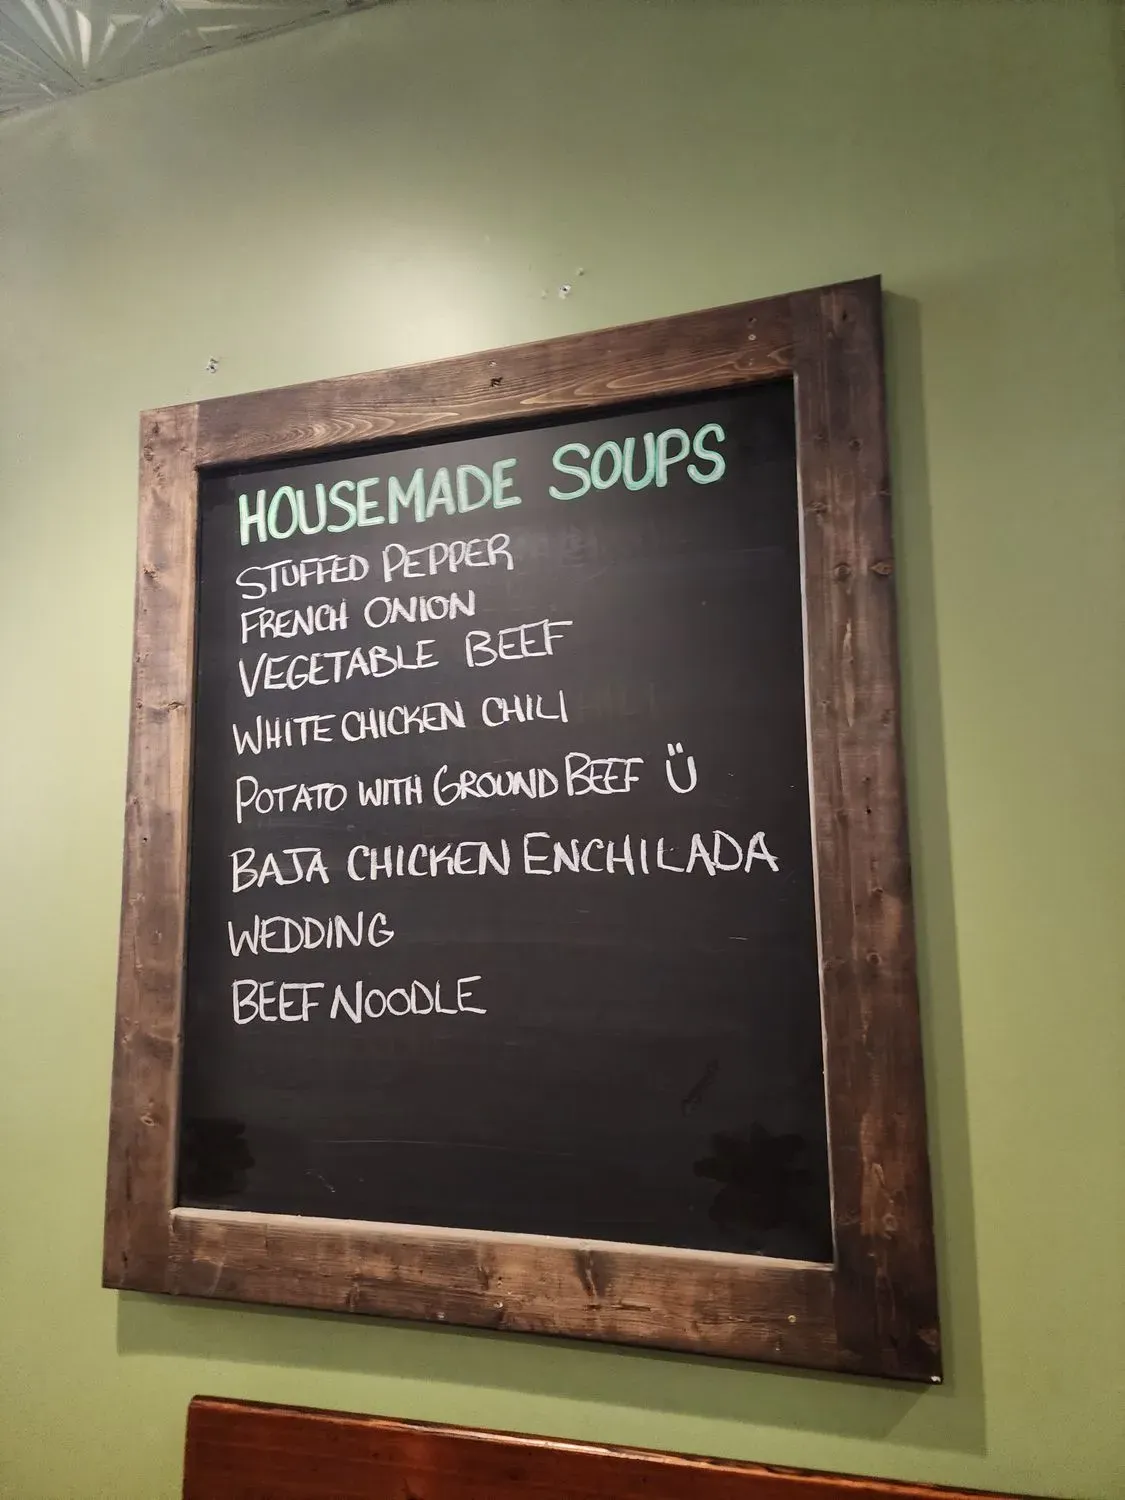 HOUSEMADE SOUPS
STUFFED PEPPER
FRENCH ONION
VEGETABLE BEEF
WHITE CHICKEN CHILI
POTATO WITH GROUND BEEF Ü
BAJA CHICKEN ENCHILADA
WEDDING
BEEF NOODLE